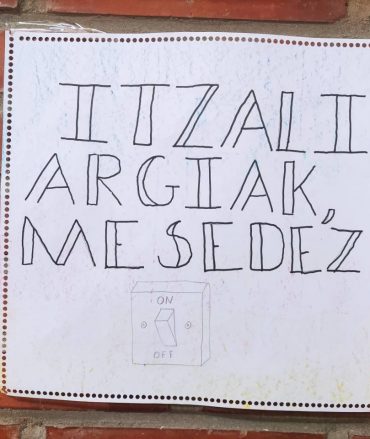 ITZALI
ARGIAK,
MESEDEZ
ON
OFF